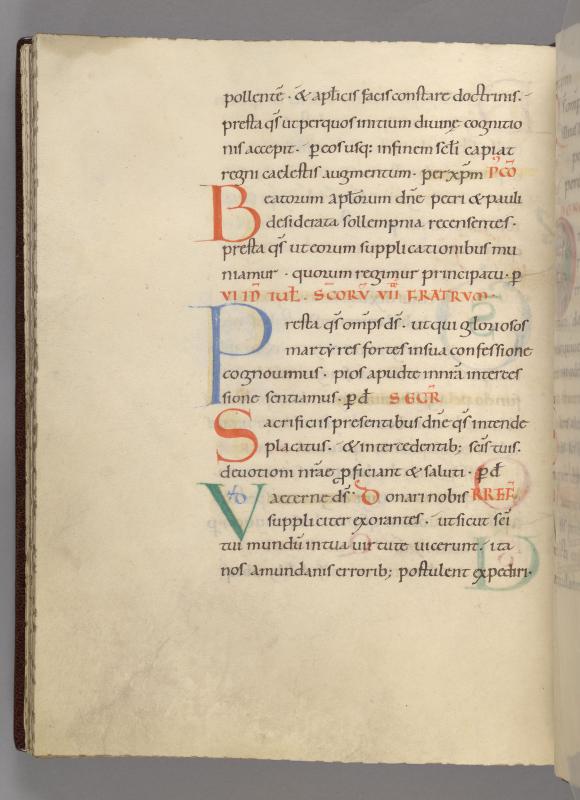 pollentē · & aplicis facis constare doctrinis.
presta qs̄ ut per quos initium divinę cognitio
nis accepit · p̄ eos usq: in finem scłi capiat
regni caelestis augmentum · per xp̄m P̄CŌ
Beatorum aplōrum dn̄e petri & pauli
desiderata sollempnia recensentes ·
presta qs̄ ut eorum supplicationibus mu
niamur · quorum regimur principatu · p̄
VI ID IUL · SCORV̄ VII FRATRVM ·
Presta qs̄ omps̄ ds̄ · ut qui gloriosos
martyres fortes in sua confessione
cognovimus · pios apud te in nr̄a interces
sione sentiamus · p̄ d̄ SECR̄
Sacrificiis presentibus dn̄e qs̄ intende
placatus · & intercedentib; sc̄is tuis ·
devotioni nr̄ae p̄ficiant & saluti · p̄ d̄
VD aeterne ds̄ · Donari nobis PREF̄
suppliciter exorantes · ut sicut sc̄i
tui mundū in tua virtute vicerunt · ita
nos a mundanis errorib; postulent expediri ·